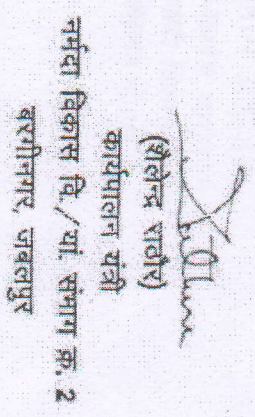 (शैलेन्द्र राठौर)
कार्यपालन यंत्री
नर्मदा विकास वि./यां. संभाग क्र. 2
बरगीनगर, जबलपुर